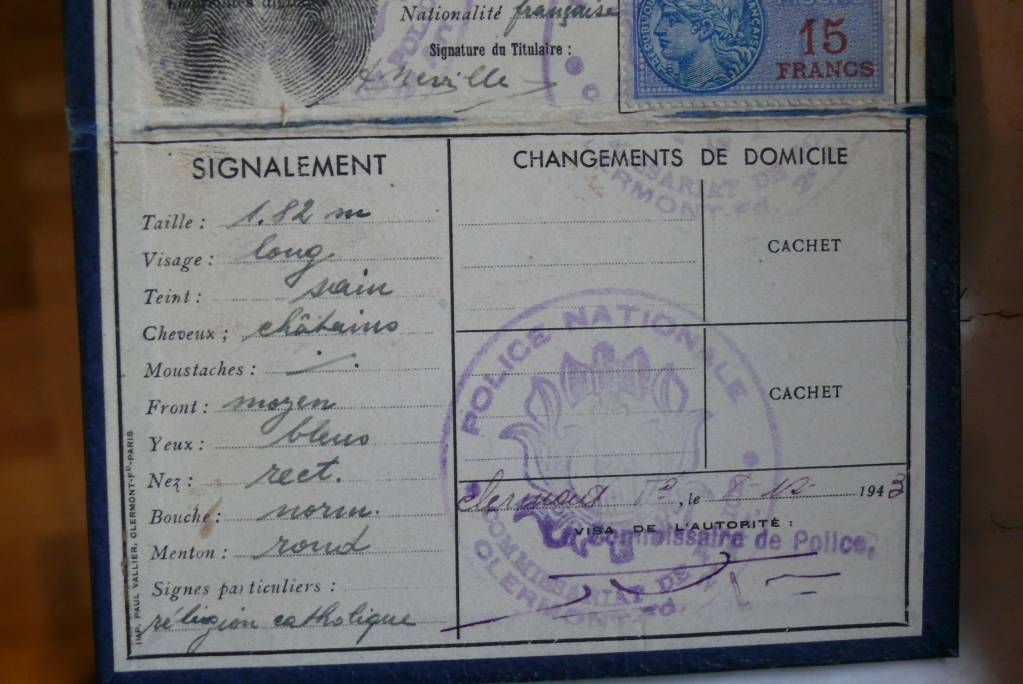 Nationalité française
Signature du Titulaire :
15
FRANCS
SIGNALEMENT
Taille : 1.82 m
Visage : long
Teint : sain
Cheveux ; châtains
Moustaches : /.
Front : moyen
Yeux : bleus
Nez : rect.
Bouche : norm.
Menton : rond
Signes particuliers :
réligion catholique
IMP. PAUL VALLIER, CLERMONT-Fᴰ-PARIS
CHANGEMENTS DE DOMICILE
CACHET
CACHET
POLICE NATIONALE
Clermont Fd, le 8-12- 1943
VISA DE L'AUTORITÉ :
Commissaire de Police,
COMMISSARIAT DE
CLERMONT-Fd.